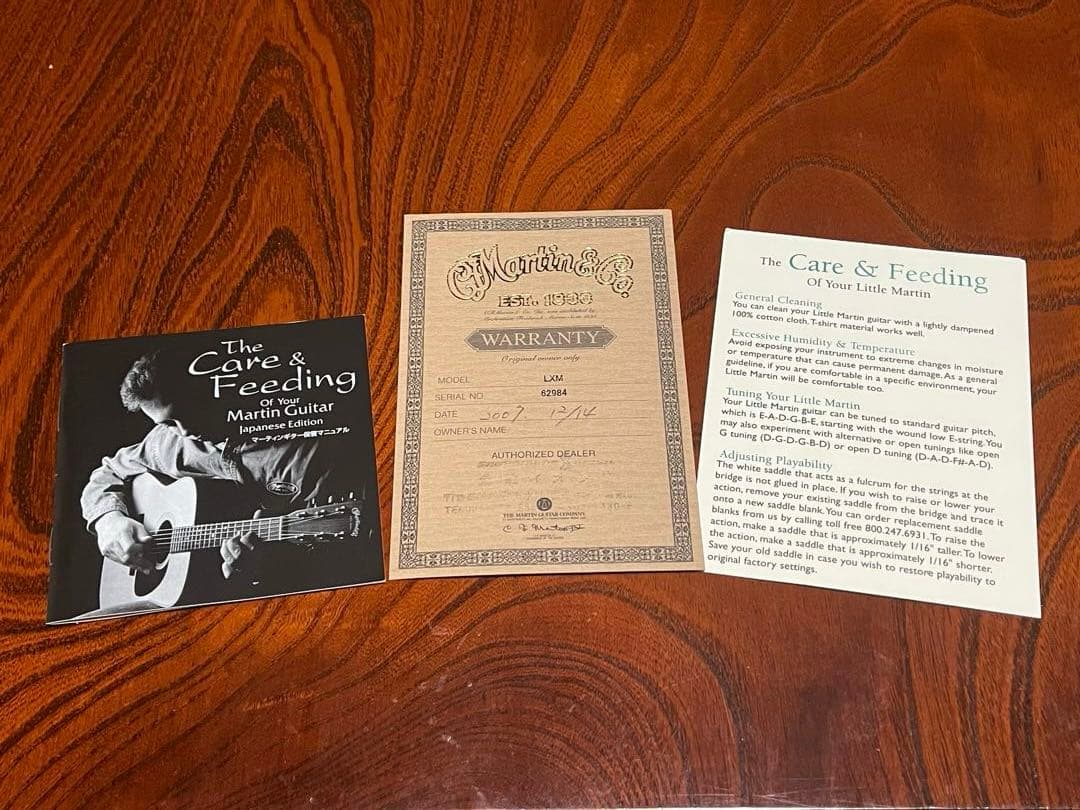 The
Care &
Feeding
Of Your
Martin Guitar
Japanese Edition
マーティンギター保管マニュアル
C.F. Martin & Co.
EST. 1833
WARRANTY
Original owner only
MODEL LXM
SERIAL NO. 62984
DATE 2007 12/14
OWNER'S NAME
AUTHORIZED DEALER
THE MARTIN GUITAR COMPANY
The Care & Feeding
Of Your Little Martin
General Cleaning
You can clean your Little Martin guitar with a lightly dampened
100% cotton cloth. T-shirt material works well.
Excessive Humidity & Temperature
Avoid exposing your instrument to extreme changes in moisture
or temperature that can cause permanent damage. As a general
guideline, if you are comfortable in a specific environment, your
Little Martin will be comfortable too.
Tuning Your Little Martin
Your Little Martin guitar can be tuned to standard guitar pitch,
which is E-A-D-G-B-E, starting with the wound low E-string. You
may also experiment with alternative or open tunings like open
G tuning (D-G-D-G-B-D) or open D tuning (D-A-D-F#-A-D).
Adjusting Playability
The white saddle that acts as a fulcrum for the strings at the
bridge is not glued in place. If you wish to raise or lower your
action, remove your existing saddle from the bridge and trace it
onto a new saddle blank. You can order replacement saddle
blanks from us by calling toll free 800.247.6931. To raise the
action, make a saddle that is approximately 1/16" taller. To lower
the action, make a saddle that is approximately 1/16" shorter.
Save your old saddle in case you wish to restore playability to
original factory settings.